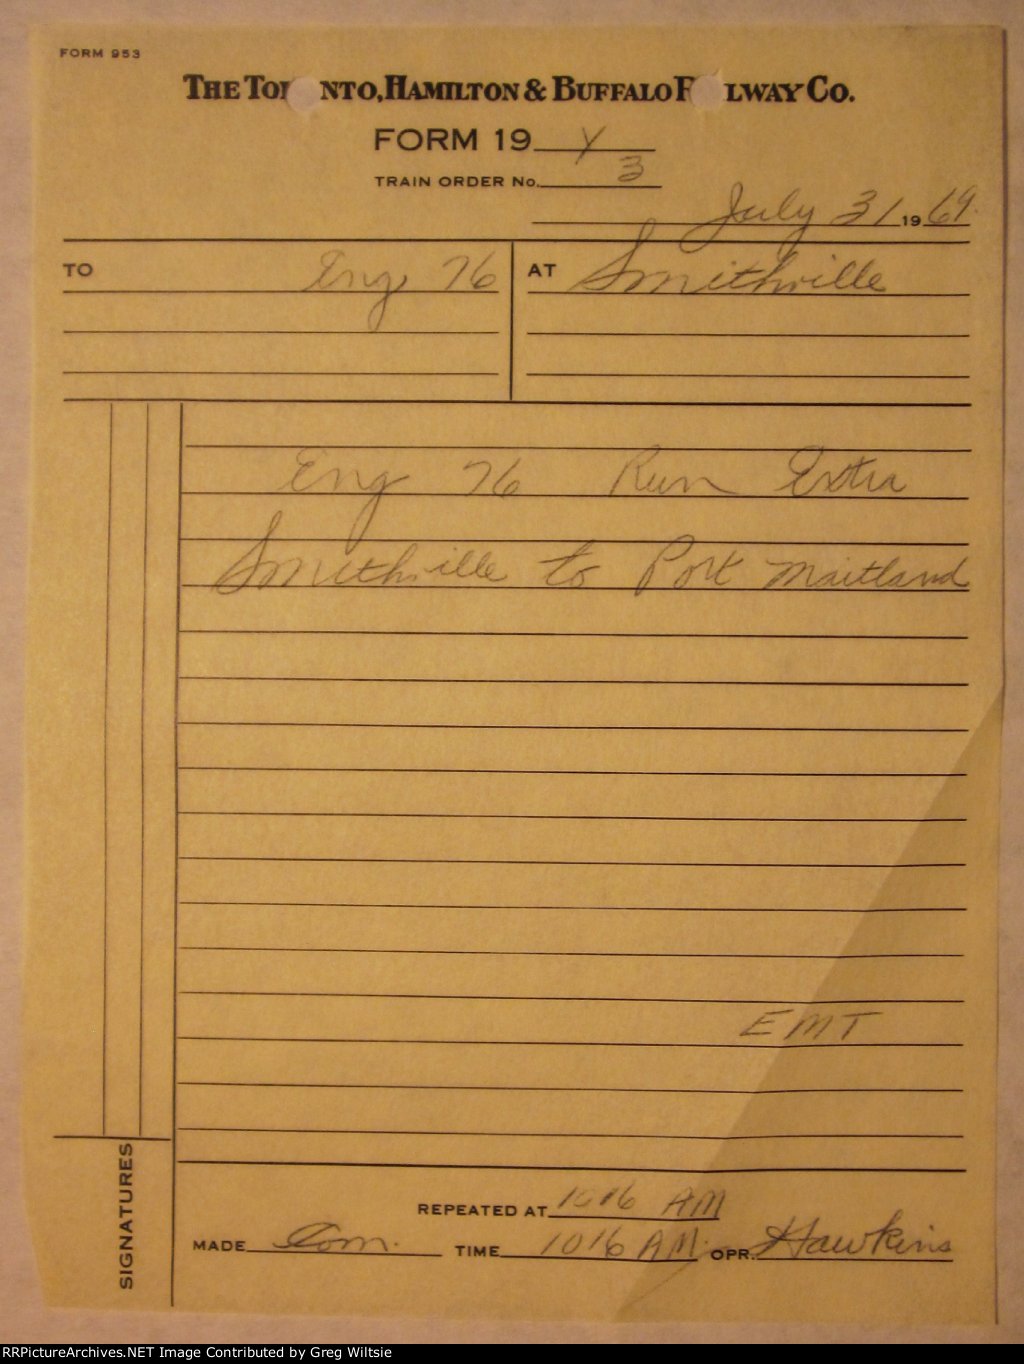 FORM 953
THE TORONTO, HAMILTON & BUFFALO RAILWAY CO.
FORM 19 Y
TRAIN ORDER No. 3
July 31 1969
TO Eng 76 AT Smithville
Eng 76 Run Extra
Smithville to Port Maitland
EMT
SIGNATURES
REPEATED AT 1016 AM
MADE Com. TIME 1016 AM. OPR. Hawkins
RRPictureArchives.NET Image Contributed by Greg Wiltsie